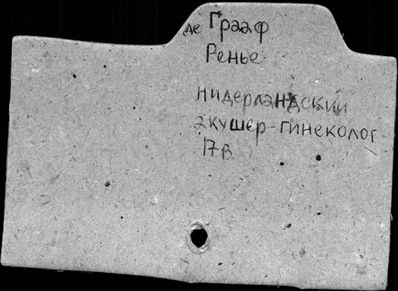 де Грааф
Ренье
нидерландский
акушер-гинеколог
17в.